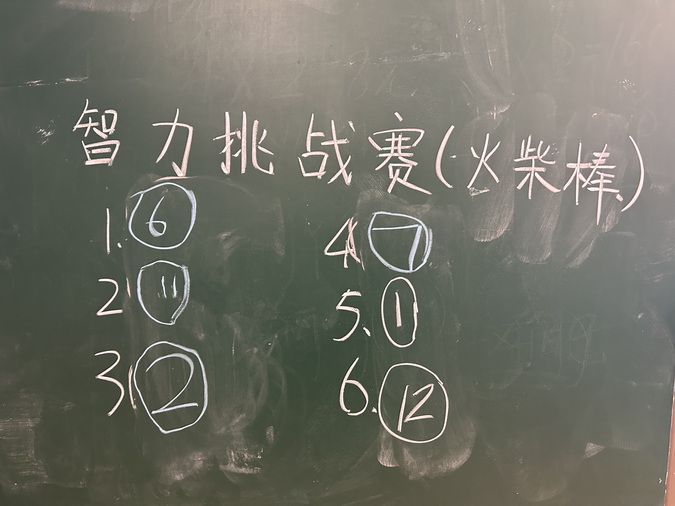 智力挑战赛(火柴棒)
1. ⑥
2. ⑪
3. ②
4. ⑦
5. ①
6. ⑫